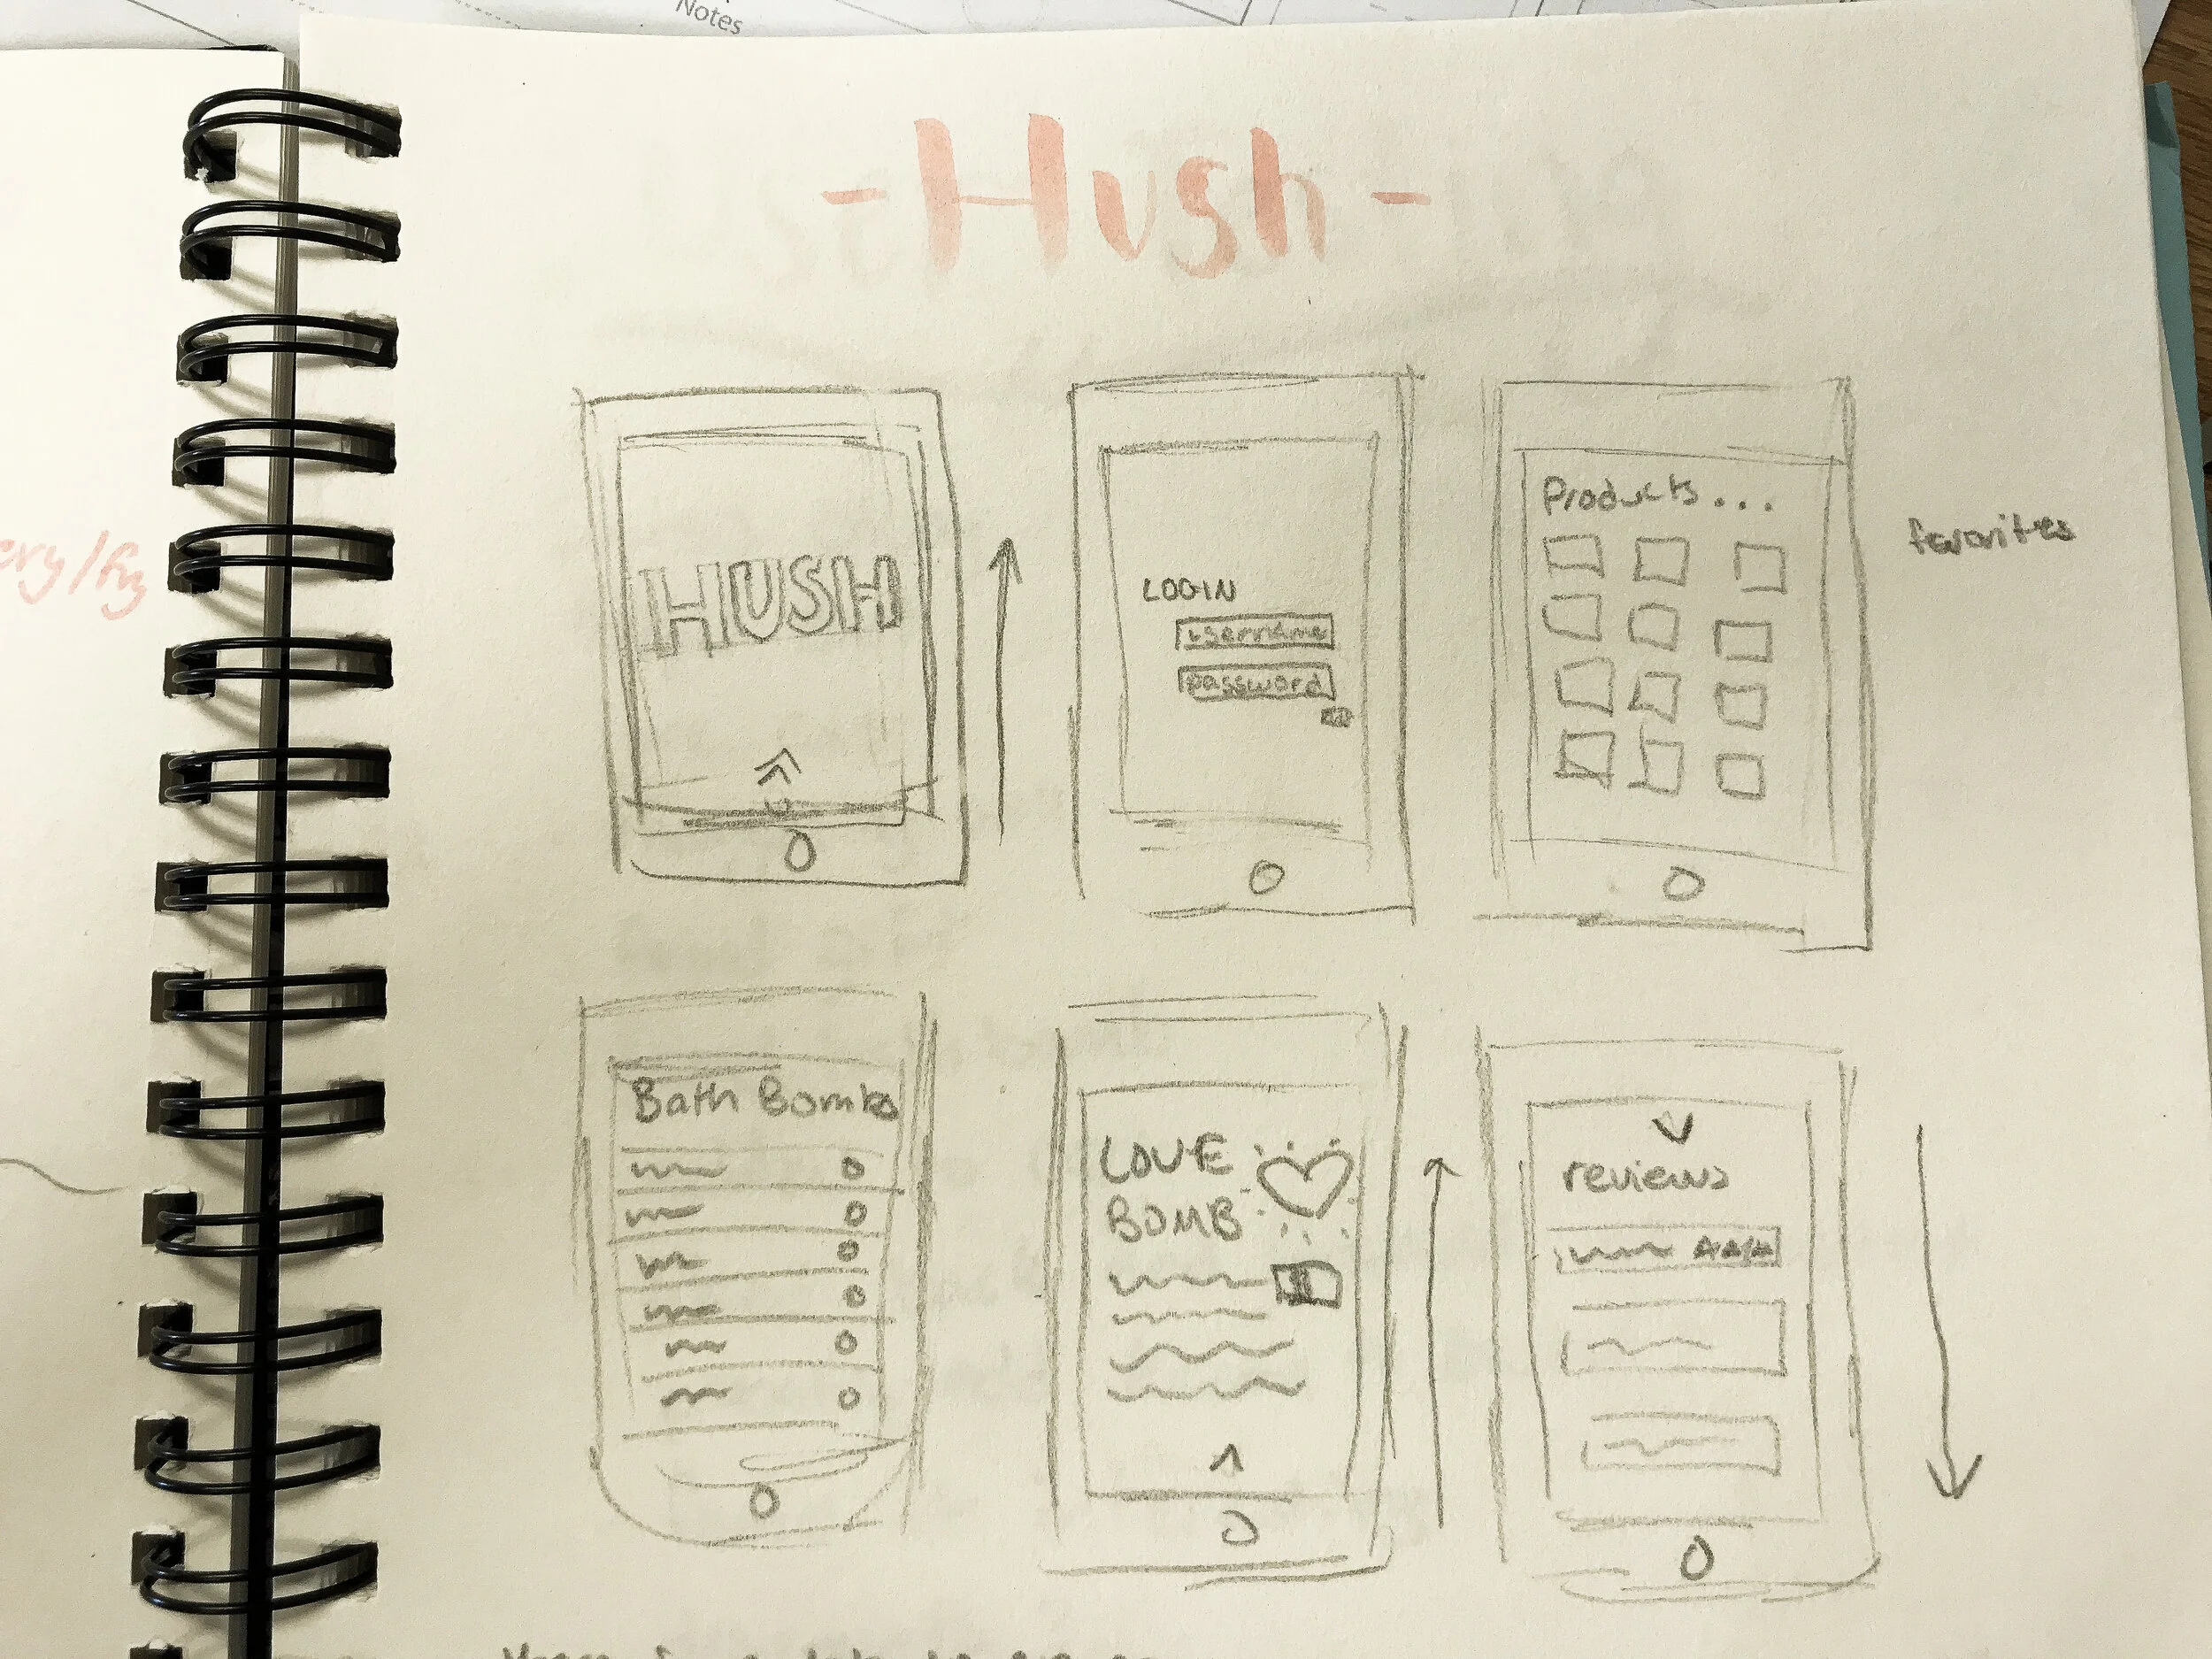 Notes
- Hush -
HUSH
LOGIN
username
password
Products...
favorites
Bath Bombs
LOVE
BOMB
reviews